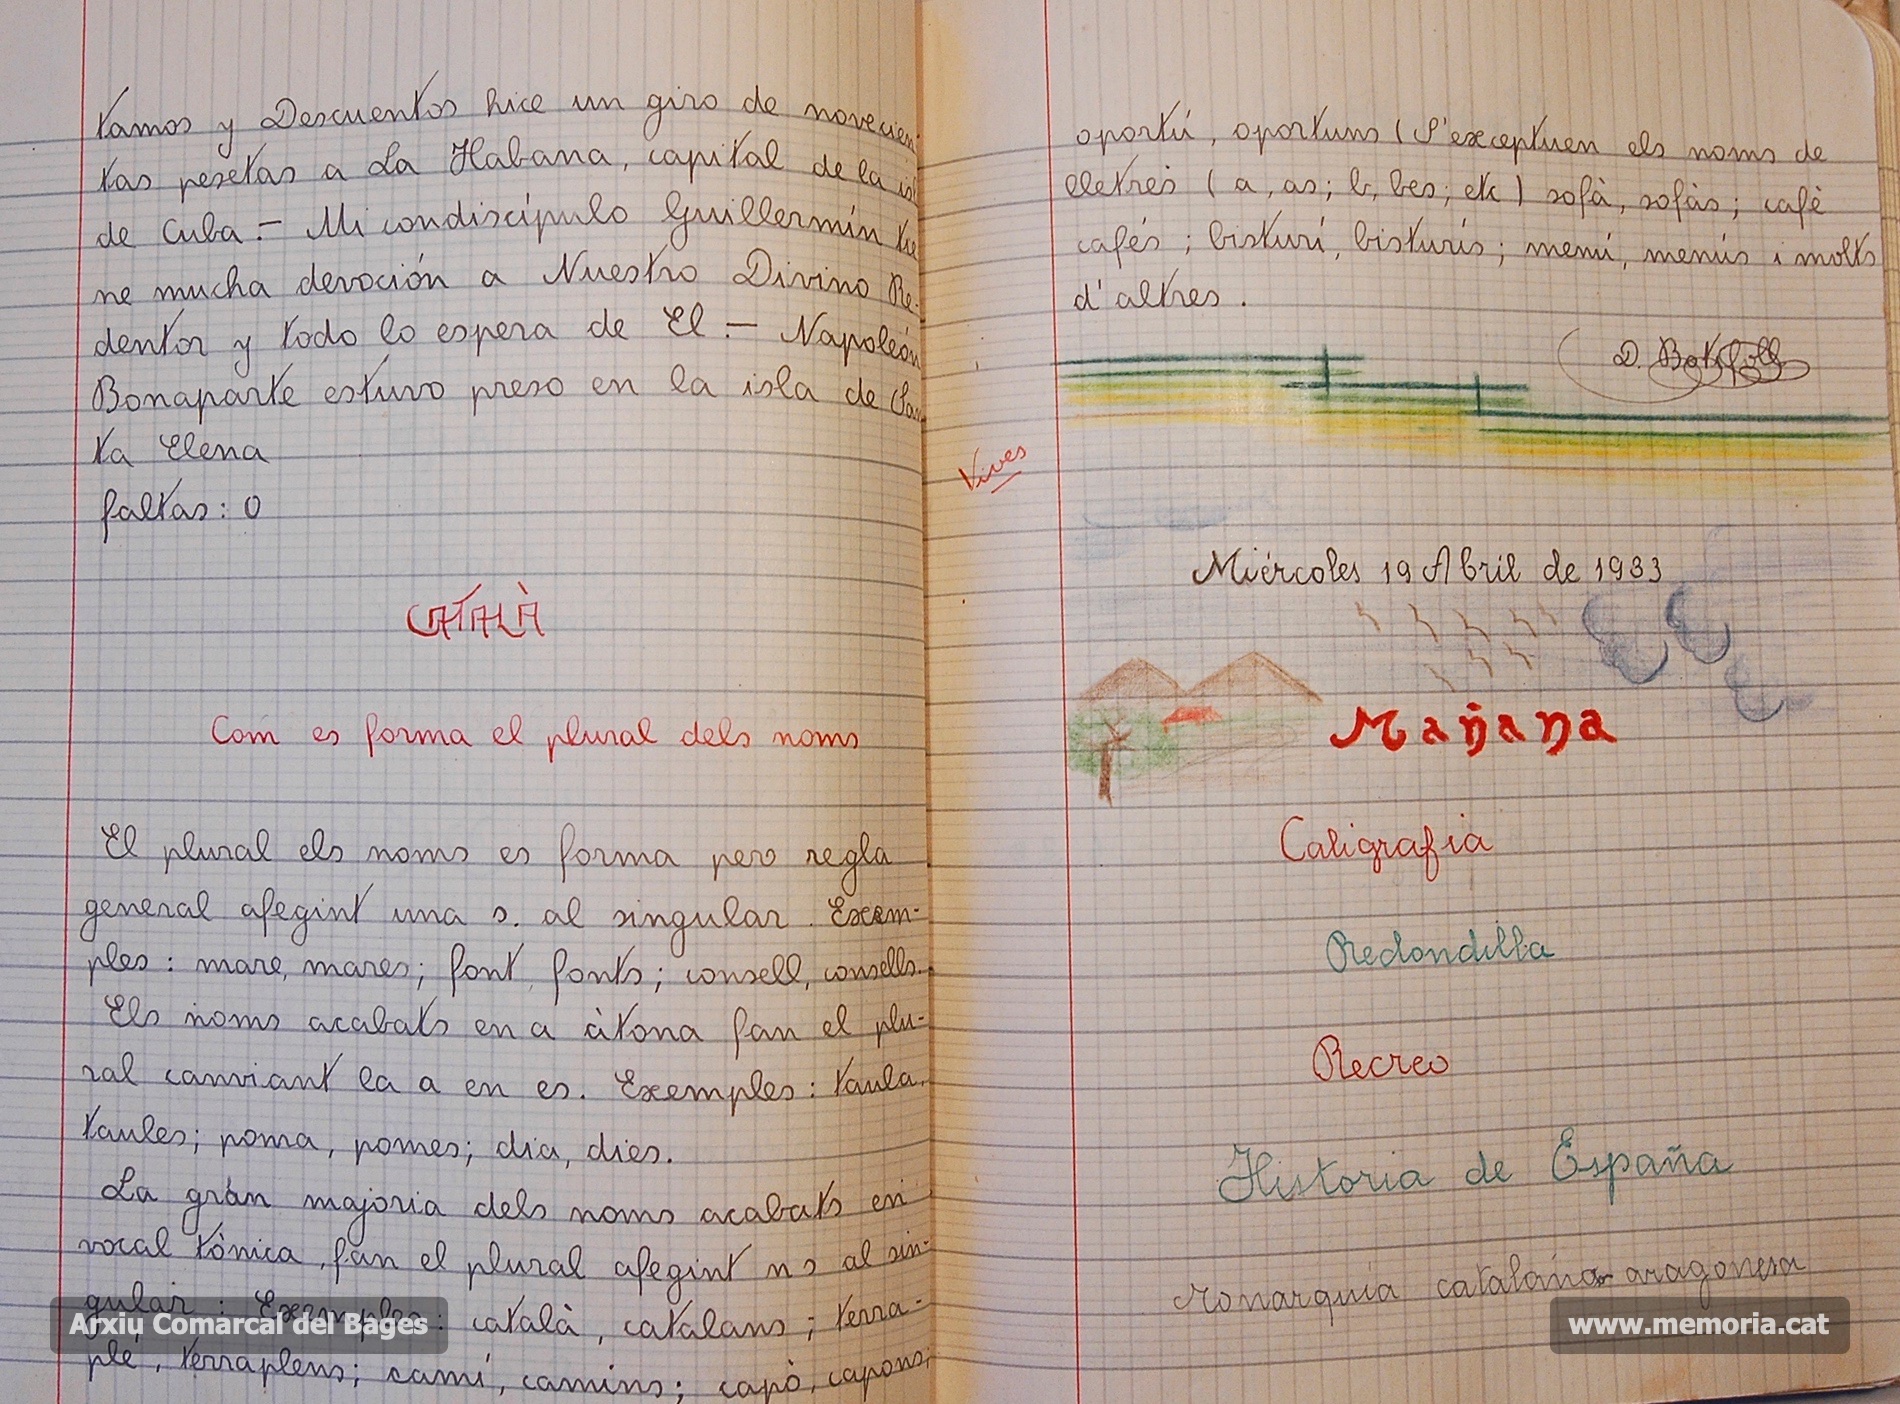 tamos y Descuentos hice un giro de novecien-
tas pesetas a La Habana, capital de la is
de Cuba.— Mi condiscípulo Guillermín tie
ne mucha devoción a Nuestro Divino Re-
dentor y todo lo espera de El.— Napoleón
Bonaparte estuvo preso en la isla de San
ta Elena
faltas: 0
CATALÀ
Com es forma el plural dels noms
El plural els noms es forma pero regla
general afegint una s. al singular. Exem-
ples: mare, mares; font, fonts; consell, consells.
Els noms acabats en a àtona fan el plu-
ral canviant la a en es. Exemples: taula,
taules; poma, pomes; dia, dies.
La gran majoria dels noms acabats en
vocal tònica, fan el plural afegint ns al sin-
gular: Exemples: català, catalans; terra-
plé, terraplens; camí, camins; capò, capons;
Arxiu Comarcal del Bages
oportú, oportuns (S'exceptuen els noms de
lletres (a, as; b, bes; etc) sofà, sofàs; cafè
cafés; bisturí, bisturís; menú, menús i molts
d'altres.
Vives
Miércoles 19 Abril de 1933
Mañana
Caligrafia
Redondilla
Recreo
Historia de España
Monarquía catalana aragonesa
www.memoria.cat